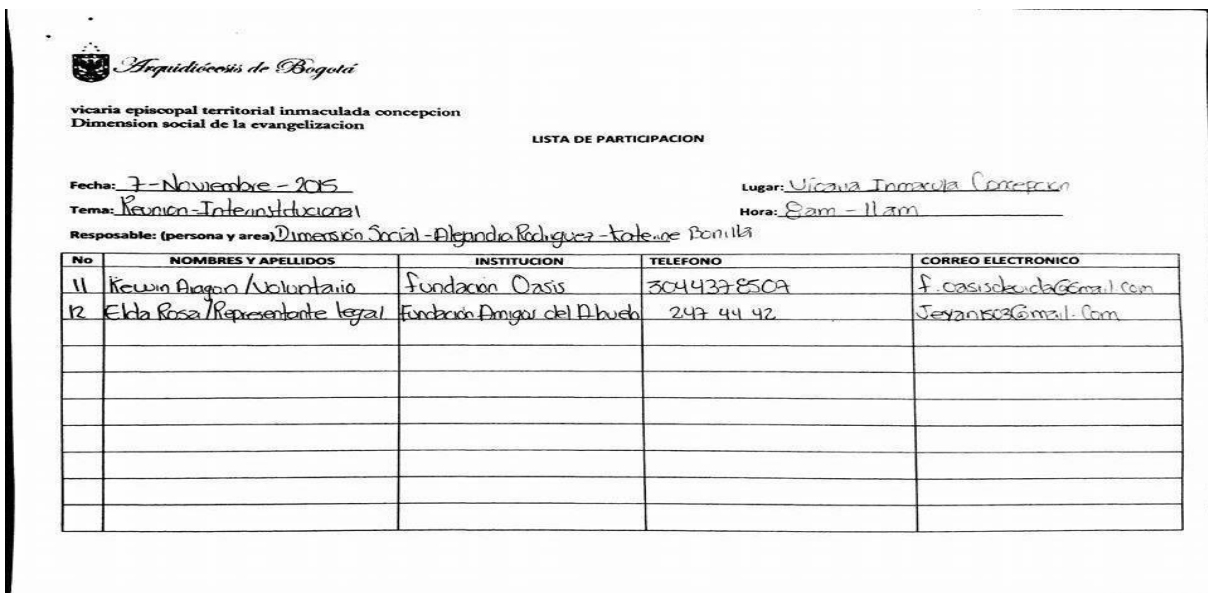 Arquidiócesis de Bogotá
vicaria episcopal territorial inmaculada concepcion
Dimension social de la evangelizacion
LISTA DE PARTICIPACION
Fecha: 7-Noviembre - 2015 Lugar: Vicaria Inmacula Concepcion
Tema: Reunion-Interinstitucional Hora: 8am - 11am
Resposable: (persona y area) Dimensión Social - Alejandra Rodriguez - Katerine Bonilla
No NOMBRES Y APELLIDOS INSTITUCION TELEFONO CORREO ELECTRONICO
11 Kewin Aragon /Voluntario fundacion Oasis 3044378507
12 Elda Rosa /Representante legal Fundación Amigos del Abuelo 247 44 42